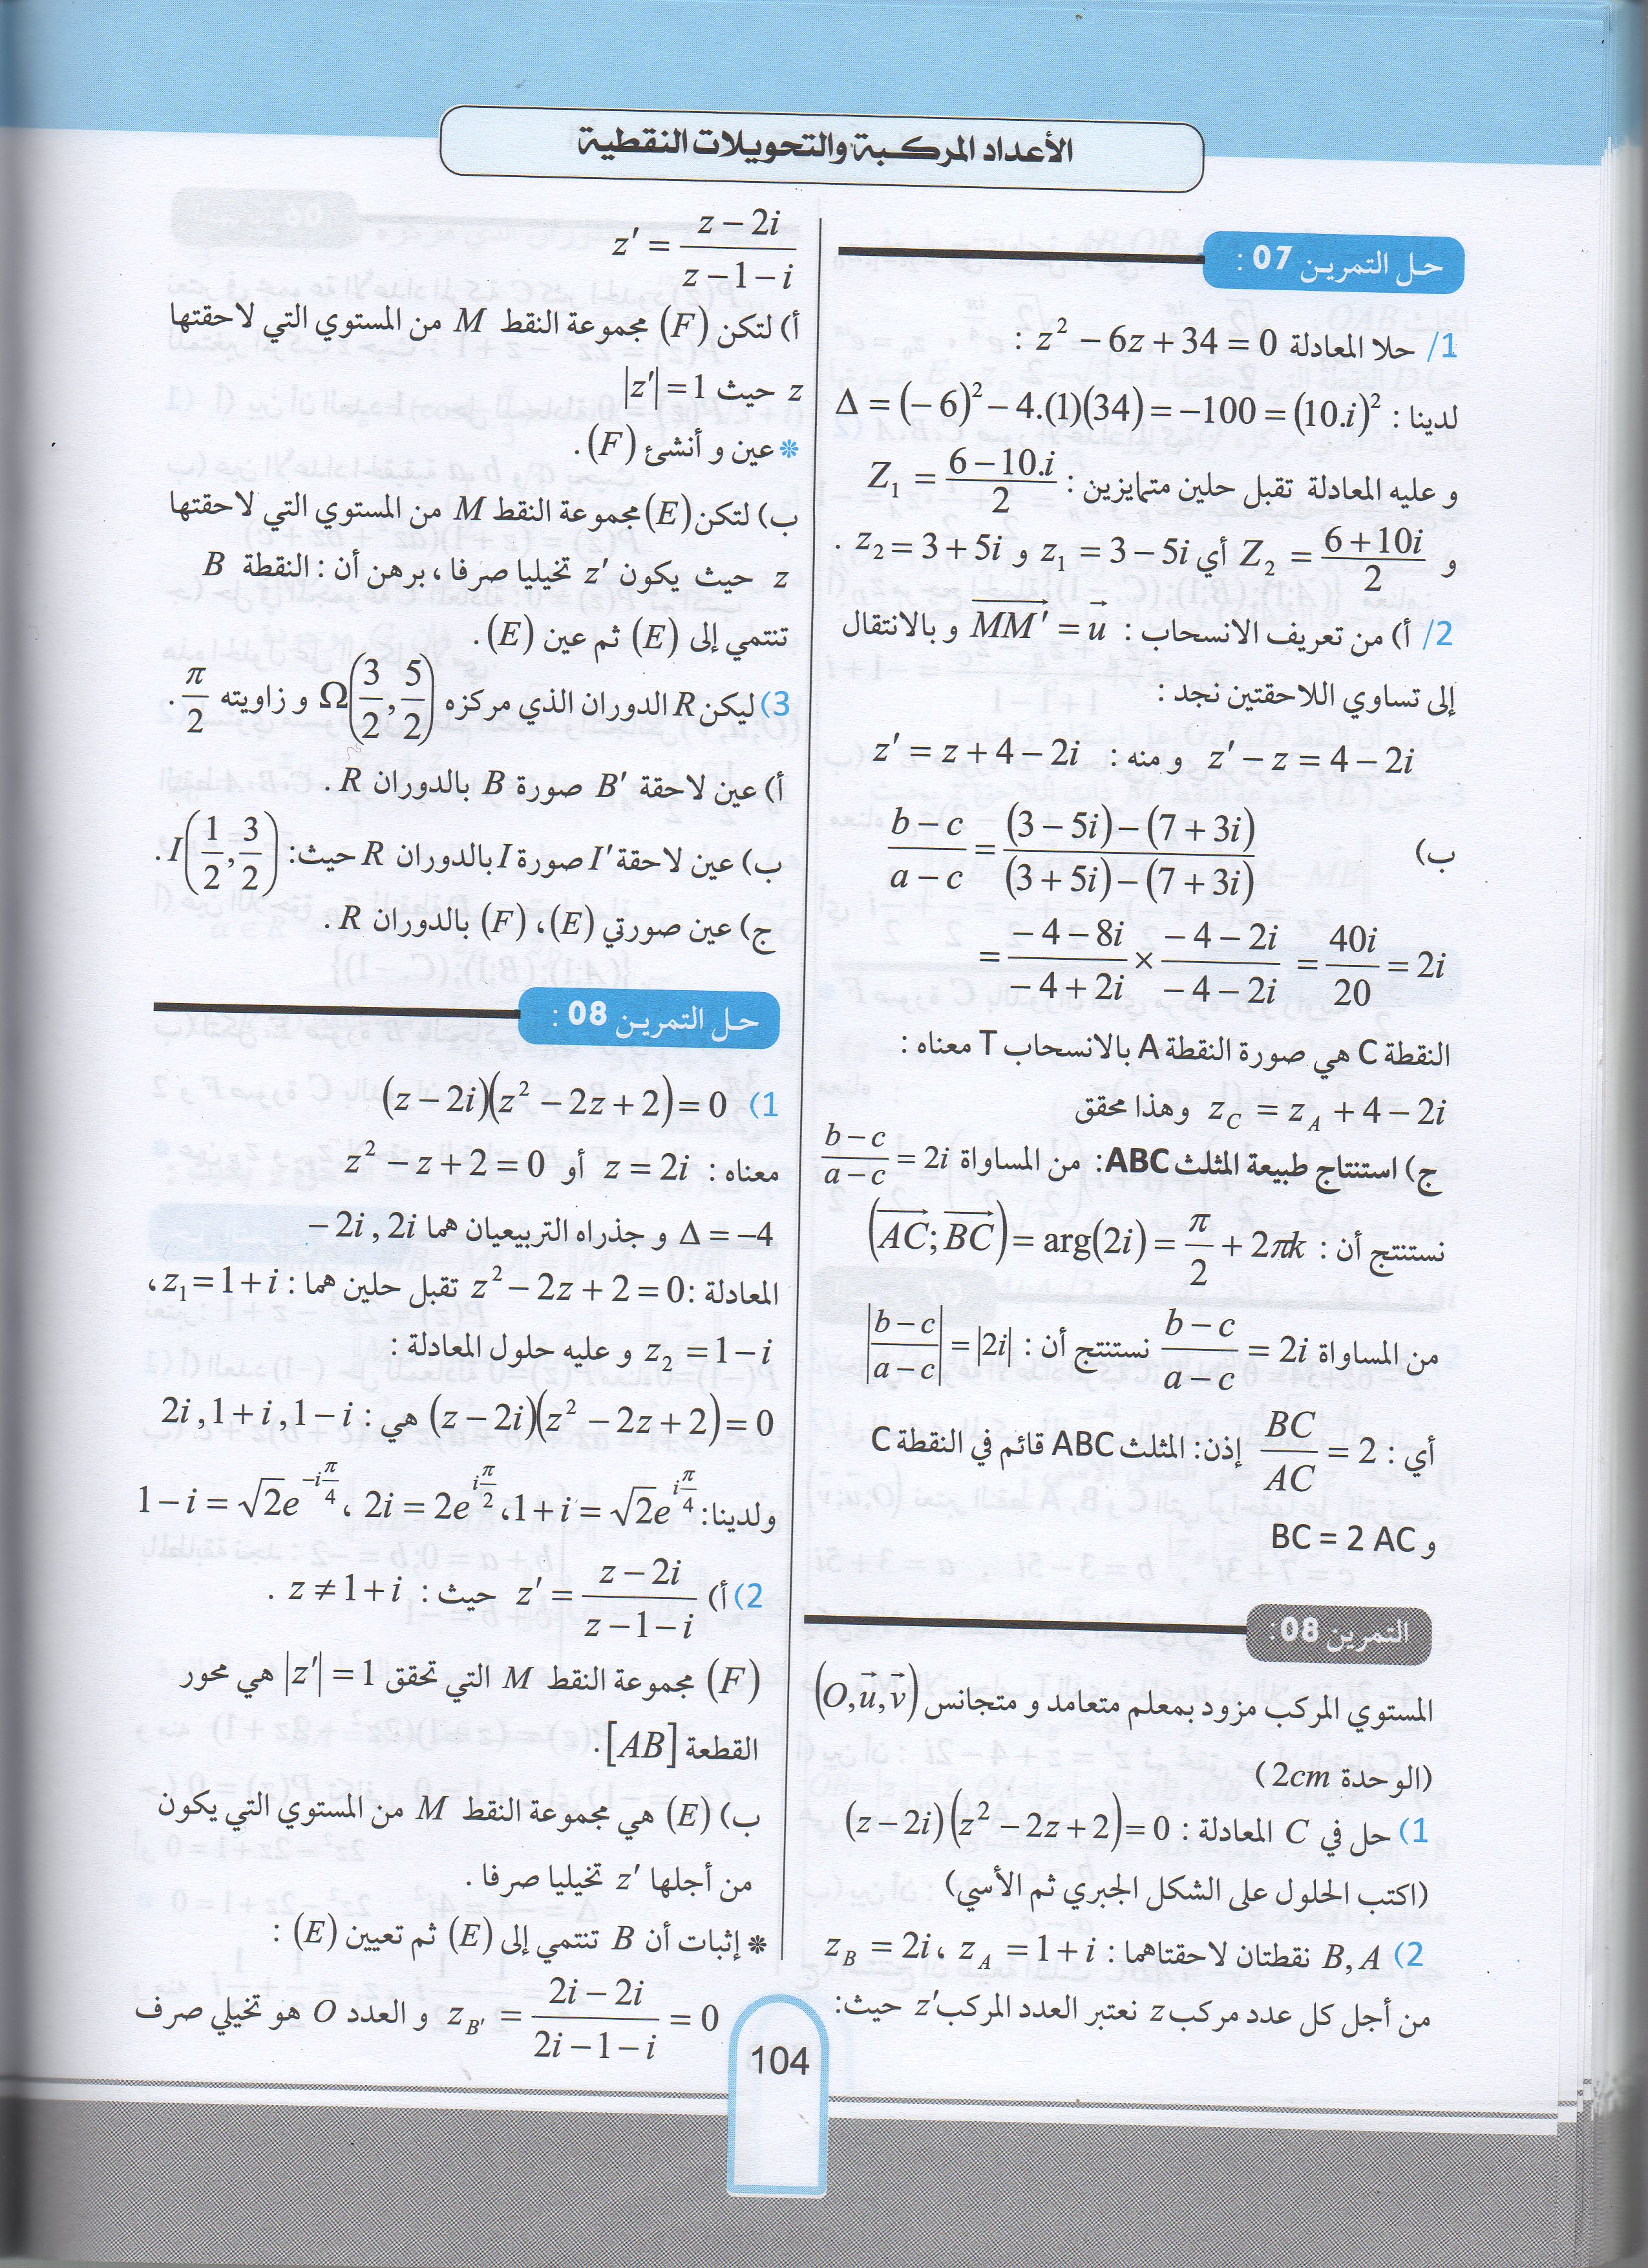 الأعداد المركبة والتحويلات النقطية
حل التمرين 07 :
1/ حلا المعادلة z² − 6z + 34 = 0 :
لدينا : Δ = (−6)² − 4.(1)(34) = −100 = (10.i)²
و عليه المعادلة تقبل حلين متمايزين : Z₁ = (6 − 10.i)/2
و Z₂ = (6 + 10i)/2 أي z₁ = 3 − 5i و z₂ = 3 + 5i .
2/ أ) من تعريف الانسحاب : MM'⃗ = u⃗ و بالانتقال
إلى تساوي اللاحقتين نجد :
z' − z = 4 − 2i و منه : z' = z + 4 − 2i
ب) (b − c)/(a − c) = ((3 − 5i) − (7 + 3i))/((3 + 5i) − (7 + 3i))
= (−4 − 8i)/(−4 + 2i) × (−4 − 2i)/(−4 − 2i) = 40i/20 = 2i
النقطة C هي صورة النقطة A بالانسحاب T معناه :
z_C = z_A + 4 − 2i وهذا محقق
ج) استنتاج طبيعة المثلث ABC: من المساواة (b − c)/(a − c) = 2i
نستنتج أن : (AC⃗; BC⃗) = arg(2i) = π/2 + 2πk
من المساواة (b − c)/(a − c) = 2i نستنتج أن : |(b − c)/(a − c)| = |2i|
أي : BC/AC = 2 إذن: المثلث ABC قائم في النقطة C
و BC = 2 AC
التمرين 08:
المستوي المركب مزود بمعلم متعامد و متجانس (O, u⃗, v⃗)
(الوحدة 2cm)
1) حل في C المعادلة : (z − 2i)(z² − 2z + 2) = 0
(اكتب الحلول على الشكل الجبري ثم الأسي)
2) B, A نقطتان لاحقتاهما : z_A = 1 + i ، z_B = 2i
من أجل كل عدد مركب z نعتبر العدد المركب z' حيث:
z' = (z − 2i)/(z − 1 − i)
أ) لتكن (F) مجموعة النقط M من المستوي التي لاحقتها
z حيث |z'| = 1
* عين و أنشئ (F).
ب) لتكن (E) مجموعة النقط M من المستوي التي لاحقتها
z حيث يكون z' تخيليا صرفا ، برهن أن : النقطة B
تنتمي إلى (E) ثم عين (E).
3) ليكن R الدوران الذي مركزه Ω(3/2, 5/2) و زاويته π/2 .
أ) عين لاحقة B' صورة B بالدوران R .
ب) عين لاحقة I' صورة I بالدوران R حيث: I(1/2, 3/2) .
ج) عين صورتي (E)، (F) بالدوران R .
حل التمرين 08 :
1) (z − 2i)(z² − 2z + 2) = 0
معناه : z = 2i أو z² − z + 2 = 0
Δ = −4 و جذراه التربيعيان هما 2i , −2i
المعادلة : z² − 2z + 2 = 0 تقبل حلين هما : z₁ = 1 + i ،
z₂ = 1 − i و عليه حلول المعادلة :
(z − 2i)(z² − 2z + 2) = 0 هي : 2i , 1 + i , 1 − i
ولدينا: 1 + i = √2e^(iπ/4) ، 2i = 2e^(iπ/2) ، 1 − i = √2e^(−iπ/4)
2) أ) z' = (z − 2i)/(z − 1 − i) حيث : z ≠ 1 + i .
(F) مجموعة النقط M التي تحقق |z'| = 1 هي محور
القطعة [AB].
ب) (E) هي مجموعة النقط M من المستوي التي يكون
من أجلها z' تخيليا صرفا .
* إثبات أن B تنتمي إلى (E) ثم تعيين (E) :
z_B' = (2i − 2i)/(2i − 1 − i) = 0 و العدد O هو تخيلي صرف
104